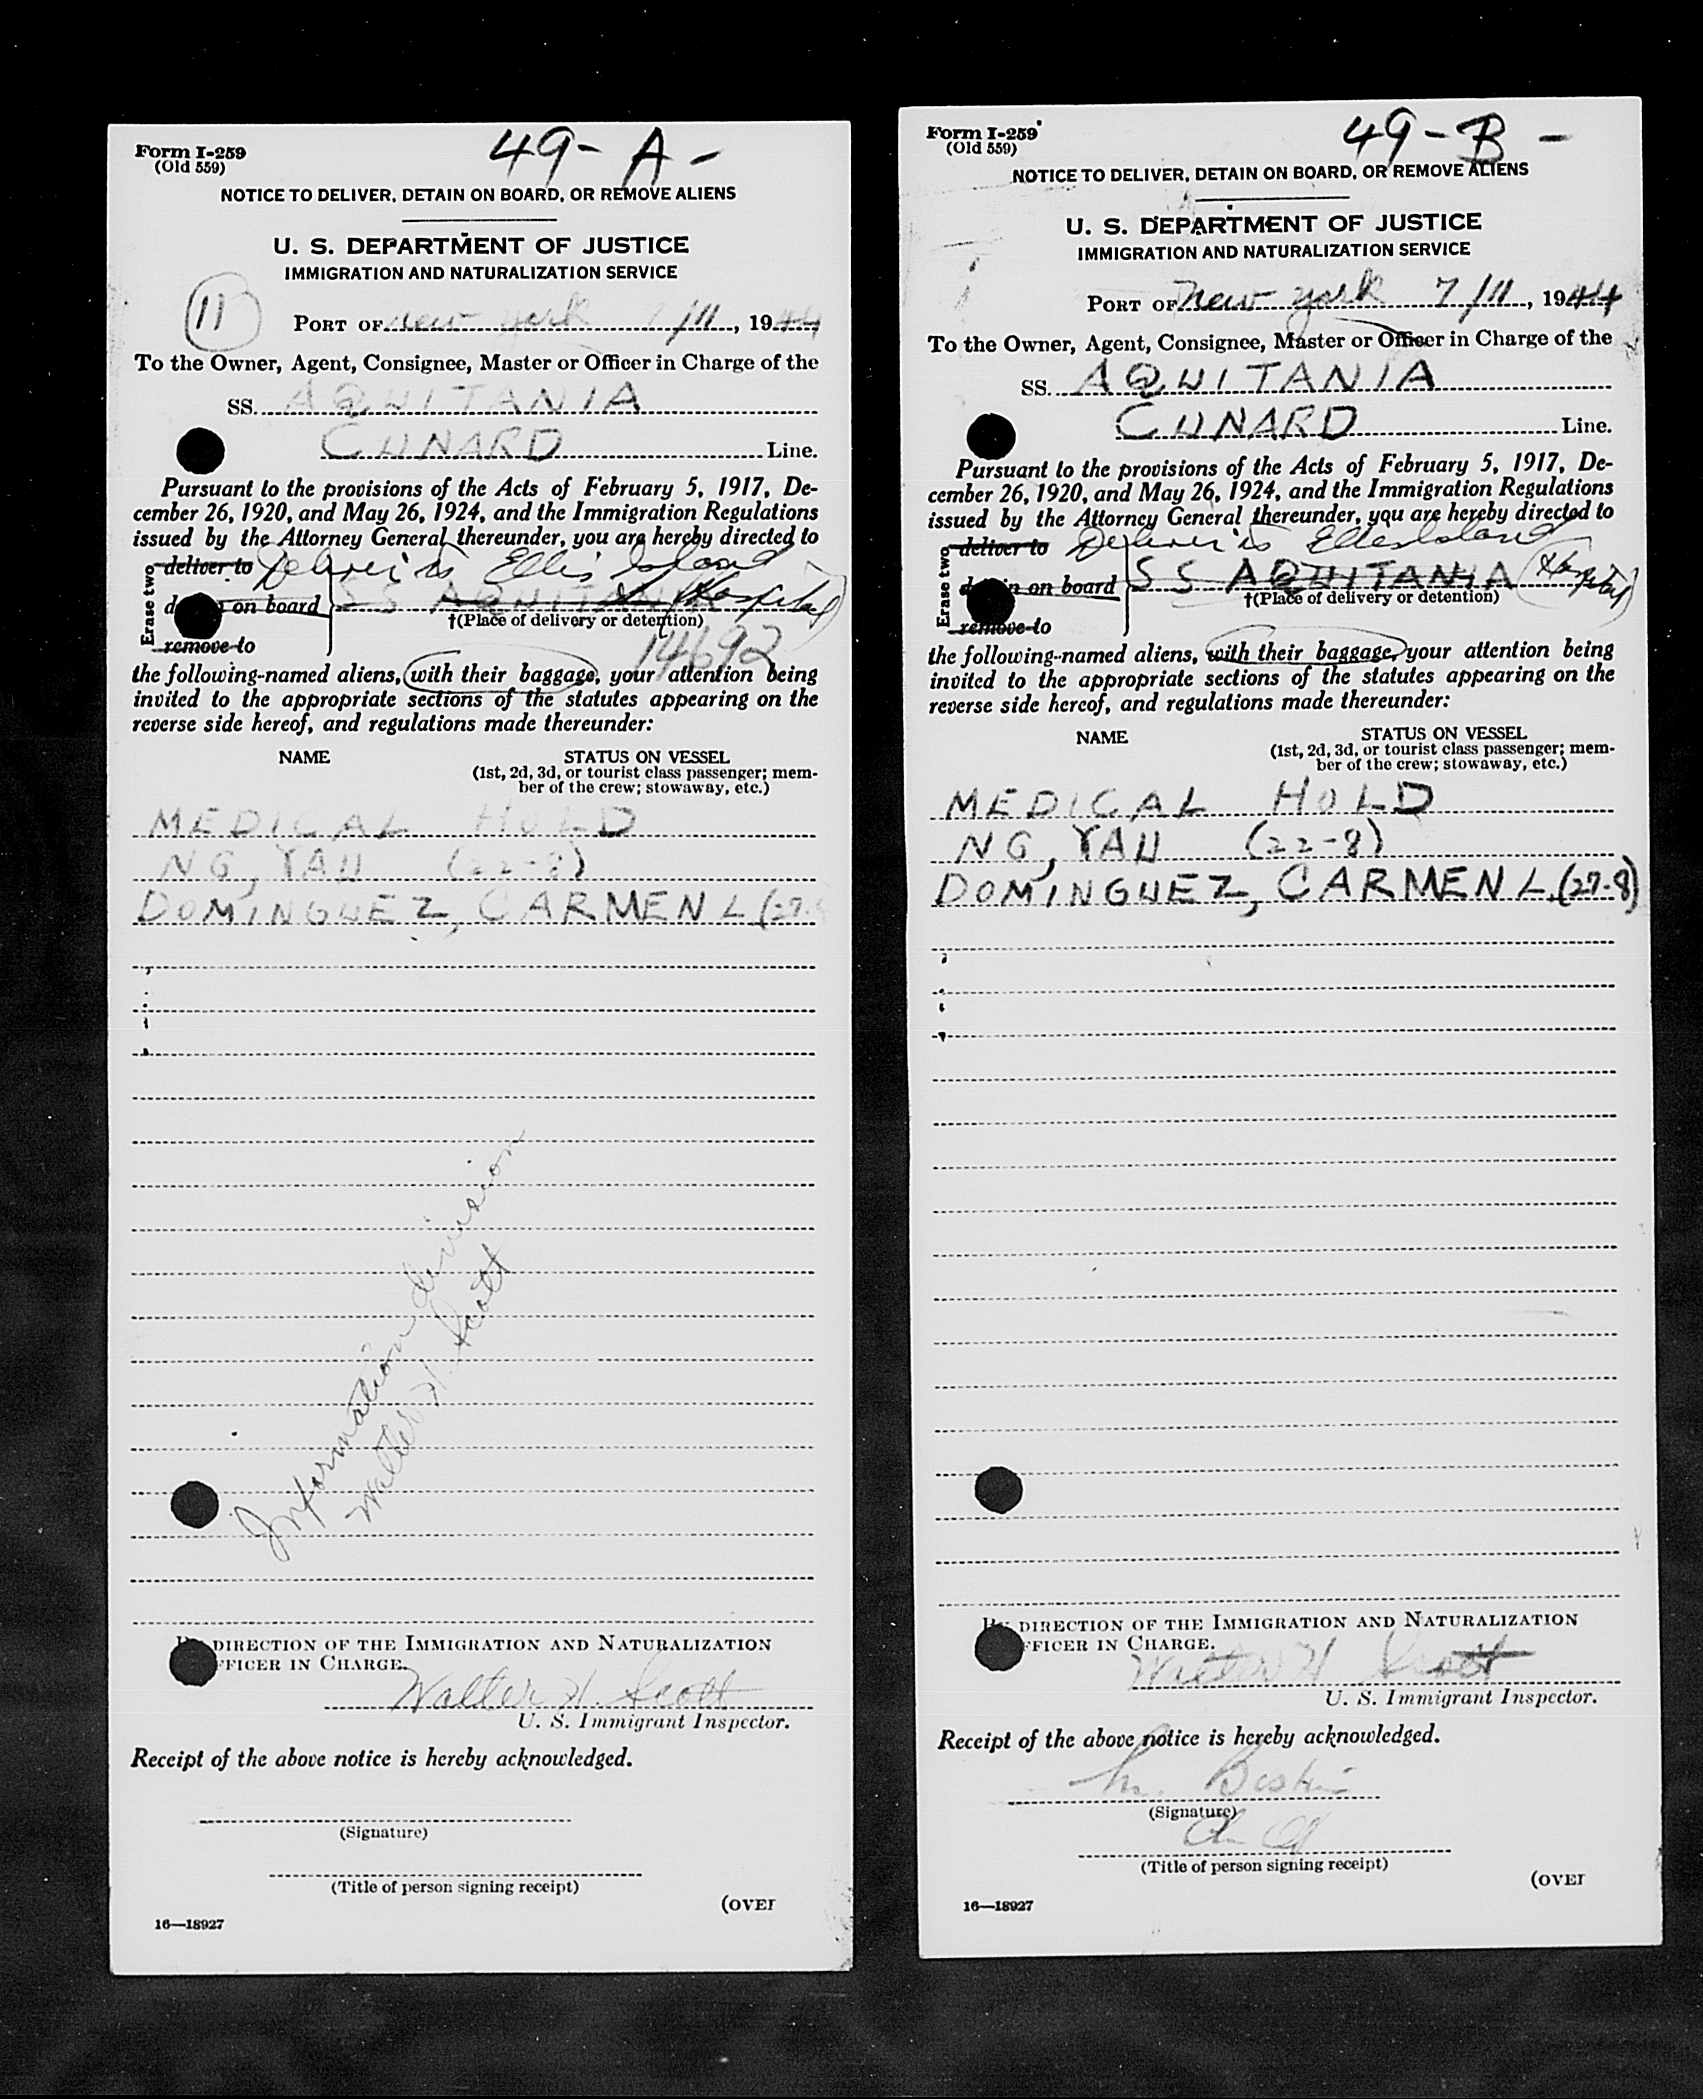 49- A -
Form I-259
(Old 559)
NOTICE TO DELIVER, DETAIN ON BOARD, OR REMOVE ALIENS
U. S. DEPARTMENT OF JUSTICE
IMMIGRATION AND NATURALIZATION SERVICE
11
PORT OF New York 7/11, 1944
To the Owner, Agent, Consignee, Master or Officer in Charge of the
SS. AQUITANIA
CUNARD Line.
Pursuant to the provisions of the Acts of February 5, 1917, De-
cember 26, 1920, and May 26, 1924, and the Immigration Regulations
issued by the Attorney General thereunder, you are hereby directed to
Erase two
deliver to Deliver to Ellis Island
on board SS AQUITANIA Hospital
†(Place of delivery or detention)
remove to
14692
the following-named aliens, with their baggage, your attention being
invited to the appropriate sections of the statutes appearing on the
reverse side hereof, and regulations made thereunder:
NAME STATUS ON VESSEL
(1st, 2d, 3d, or tourist class passenger; mem-
ber of the crew; stowaway, etc.)
MEDICAL HOLD
NG, YAU (22-8)
DOMINGUEZ, CARMEN L (27-
Information division
Walter H. Scott
DIRECTION OF THE IMMIGRATION AND NATURALIZATION
FFICER IN CHARGE.
Walter H. Scott
U. S. Immigrant Inspector.
Receipt of the above notice is hereby acknowledged.
(Signature)
(Title of person signing receipt)
(OVER
16—18927
49 - B -
Form I-259
(Old 559)
NOTICE TO DELIVER, DETAIN ON BOARD, OR REMOVE ALIENS
U. S. DEPARTMENT OF JUSTICE
IMMIGRATION AND NATURALIZATION SERVICE
PORT OF New York 7/11, 1944
To the Owner, Agent, Consignee, Master or Officer in Charge of the
SS. AQUITANIA
CUNARD Line.
Pursuant to the provisions of the Acts of February 5, 1917, De-
cember 26, 1920, and May 26, 1924, and the Immigration Regulations
issued by the Attorney General thereunder, you are hereby directed to
Erase two
deliver to Deliver to Ellis Island
on board SS AQUITANIA (Hospital)
†(Place of delivery or detention)
remove to
the following-named aliens, with their baggage, your attention being
invited to the appropriate sections of the statutes appearing on the
reverse side hereof, and regulations made thereunder:
NAME STATUS ON VESSEL
(1st, 2d, 3d, or tourist class passenger; mem-
ber of the crew; stowaway, etc.)
MEDICAL HOLD
NG, YAU (22-8)
DOMINGUEZ, CARMEN L. (27-8)
DIRECTION OF THE IMMIGRATION AND NATURALIZATION
FFICER IN CHARGE.
Walter H Scott
U. S. Immigrant Inspector.
Receipt of the above notice is hereby acknowledged.
(Signature)
(Title of person signing receipt)
(OVER
16—18927